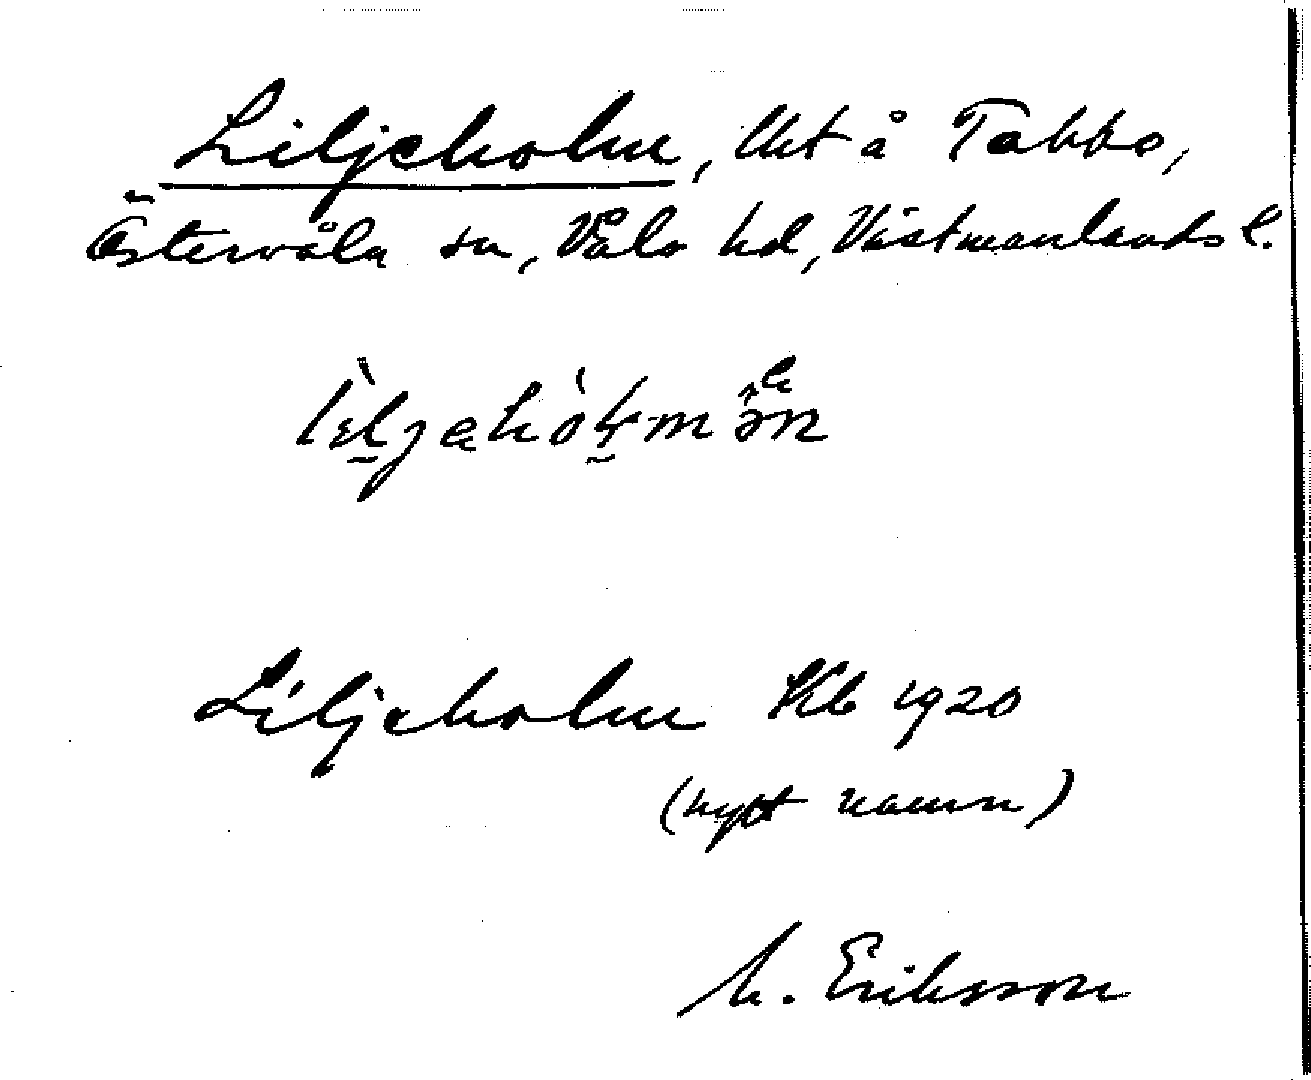 Liljeholm, lht å Tabbo,
Östervåla sn, Våla hd, Västmanlands l.
Liljeholm Kb 1920
(nytt namn)
M. Eriksson